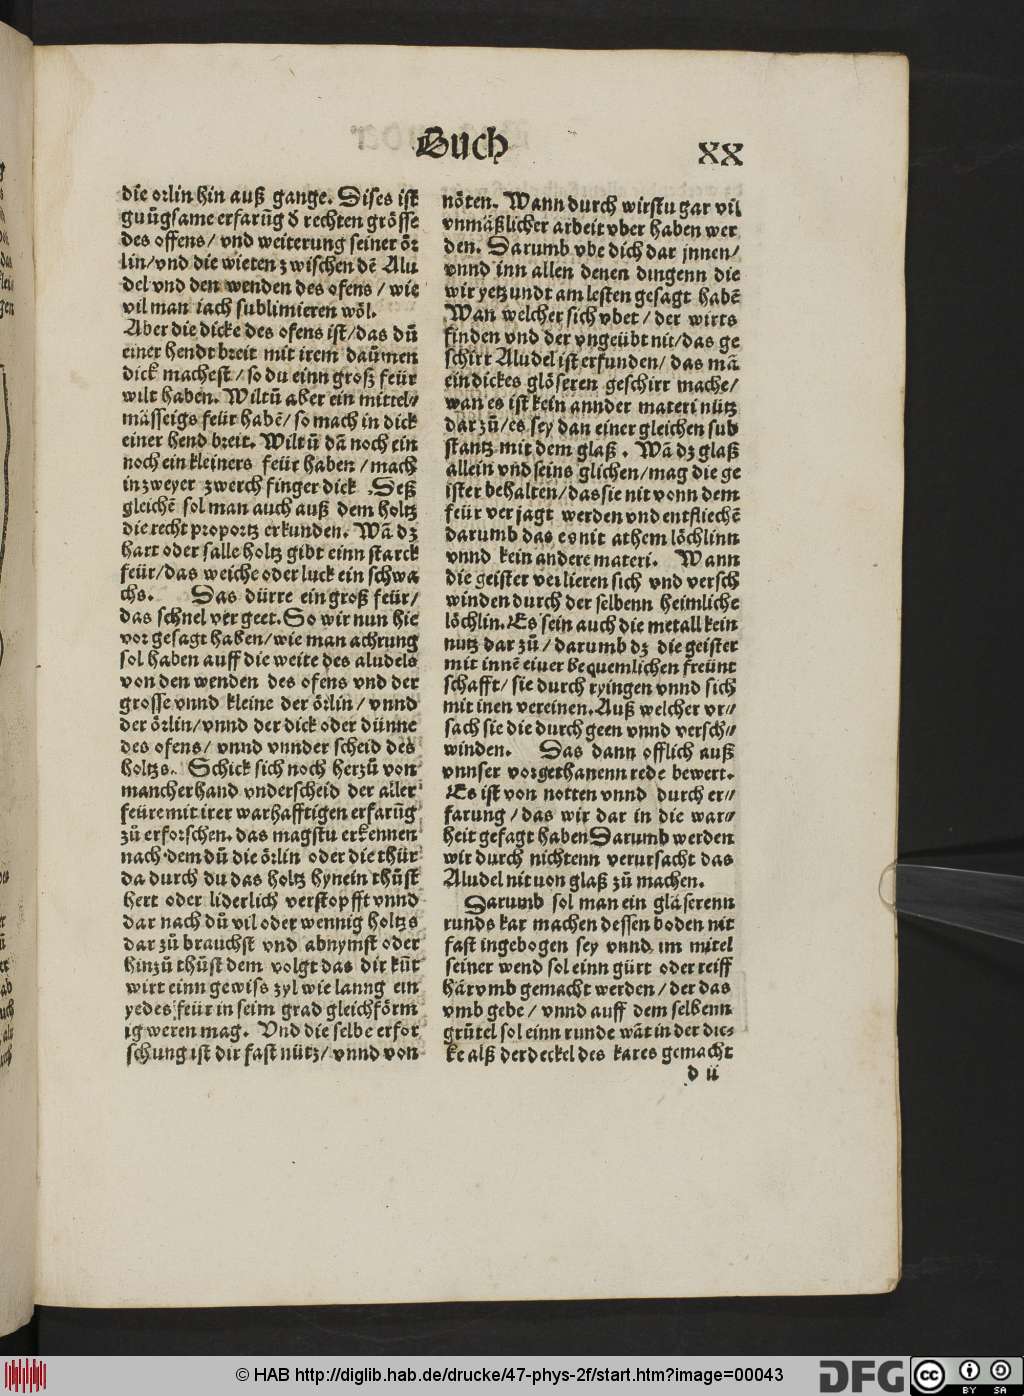 Buch
XX
die orlin hin auß gange. Dises ist
gnůgsame erfarūg d̄ rechten grösse
des offens/ vnd weiterung seiner ör
lin/vnd die wieten zwischen dē Alu
del vnd den wenden des ofens / wie
vil man iach sublimieren wöl.
Aber die dicke des ofens ist/das dů
einer hendt breit mit irem daůmen
dick machest/ so du einn groß feür
wilt haben. Wiltu aber ein mittel//
mässeigs feür habē/ so mach in dick
einer hend breit. Wiltů dā noch ein
noch ein kleiners feür haben /mach
in zweyer zwerch finger dick. Deß
gleichē sol man auch auß dem holtz
die recht proportz erkunden. Wā dz
hart oder salle holtz gibt einn starck
feür/das weiche oder luck ein schwa
chs. Das dürre ein groß feür/
das schnel vergeet. So wir nun hie
vor gesagt haben/wie man achtung
sol haben auff die weite des aludels
von den wenden des ofens vnd der
grosse vnnd kleine der örlin/ vnnd
der örlin/vnnd der dick oder dünne
des ofens/ vnnd vnnder scheid des
holtzs. Schick sich noch herzů von
mancherhand vnderscheid der aller
feüre mit irer warhafftigen erfarūg
zů erforschen. das magstu erkennen
nach dem dů die örlin oder die thür
da durch du das holtz hynein thůst
hert oder liderlich verstopfft vnnd
dar nach dů vil oder wennig holtzs
dar zů brauchst vnd abnymst oder
hinzů thůst dem volgt das dir kůt
wirt einn gewiss zyl wie lanng ein
yedes feür in seim grad gleichförm
ig weren mag. Vnd die selbe erfor
schung ist dir fast nütz/ vnnd von
nöten. Wann durch wirstu gar vil
vnmäßlicher arbeit vber haben wer
den. Darumb vbe dich dar jnnen/
vnnd inn allen denen dingenn die
wir yetzundt am lesten gesagt habē
Wan welcher sich vbet/ der wirts
finden vnd der vngeübt nit/das ge
schirr Aludel ist erfunden/ das mā
ein dickes glöseren geschirr mache/
wan es ist kein annder materi nütz
dar zů/es sey dan einer gleichen sub
stantz mit dem glaß . Wā dz glaß
allein vnd seins glichen/mag die ge
ister behalten/das sie nit vonn dem
feür verjagt werden vnd entfliechē
darumb das es nit athem löchlinn
vnnd kein andere materi. Wann
die geister verlieren sich vnd versch
winden durch der selbenn heimliche
löchlin. Es sein auch die metall kein
nutz dar zů/ darumb dz die geister
mit innē einer bequemlichen freünt
schafft/ sie durch ryingen vnnd sich
mit inen vereinen. Auß welcher vr//
sach sie die durch geen vnnd versch//
winden. Das dann offlich auß
vnnser vorgethanenn rede bewert.
Es ist von notten vnnd durch er//
farung /das wir dar in die war//
heit gesagt haben Darumb werden
wir durch nichtenn verursacht das
Aludel nit uon glaß zů machen.
Darumb sol man ein gläserenn
runds kar machen dessen boden nit
fast ingebogen sey vnnd im mitel
seiner wend sol einn gürt oder reiff
härvmb gemacht werden/ der das
vmb gebe/ vnnd auff dem selbenn
grůtel sol einn runde wāt in der dic-
ke alß der deckel des kares gemacht
d ii
© HAB http://diglib.hab.de/drucke/47-phys-2f/start.htm?image=00043
DFG
cc
BY
SA